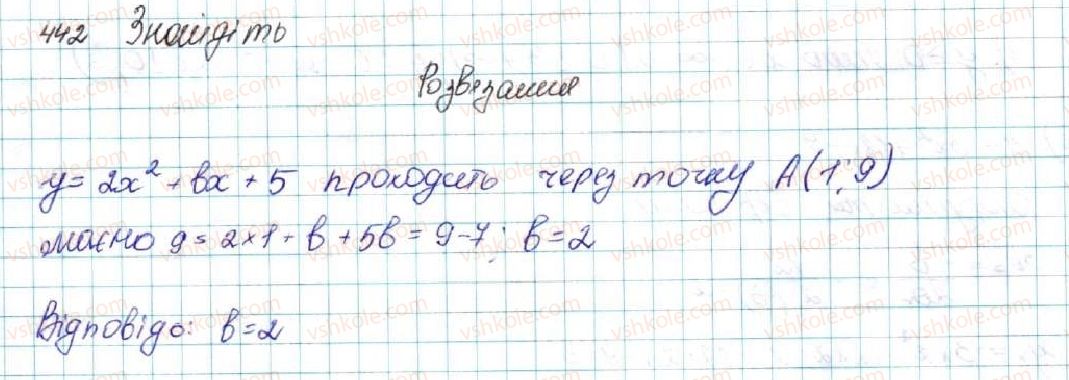 442 Знайдіть
Розвязання
y = 2x² + bx + 5 проходить через точку A(1; 9)
маємо 9 = 2 × 1 + b + 5b = 9 - 7; b = 2
Відповідь: b = 2